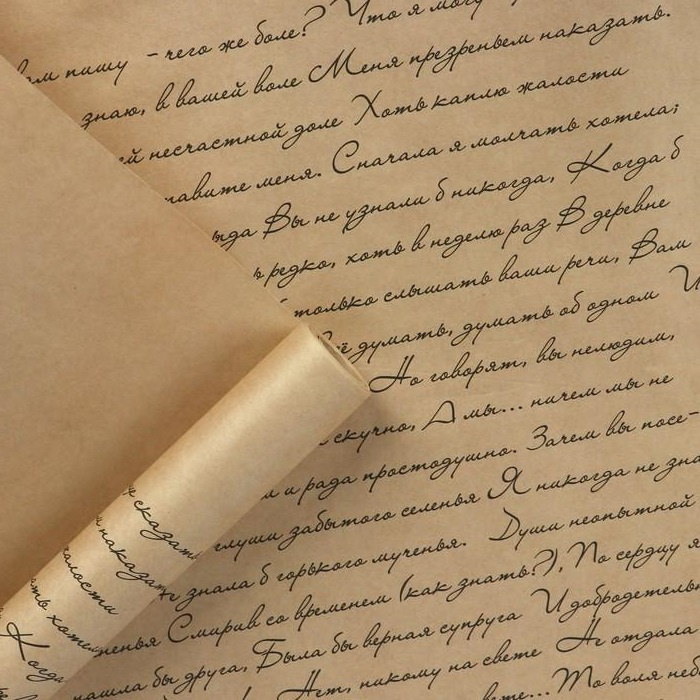 вам пишу – чего же боле? Что я могу
знаю, в вашей воле Меня презреньем наказать.
ей несчастной доле Хоть каплю жалости
тавите меня. Сначала я молчать хотела;
ыда Вы не узнали б никогда, Когда б
ь редко, хоть в неделю раз В деревне
только слышать ваши речи, Вам
Всё думать, думать об одном И
Но говорят, вы нелюдим,
скучно, А мы... ничем мы не
м и рада простодушно. Зачем вы посе-
глуши забытого селенья Я никогда не зна
е знала б горького мученья. Души неопытной
ненья Смирив со временем (как знать?), По сердцу я
нашла бы друга, Была бы верная супруга И добродетельн
Нет, никому на свете Не отдала
ете... То воля неб
сказать
наказать
алости
ать хотел
Когда